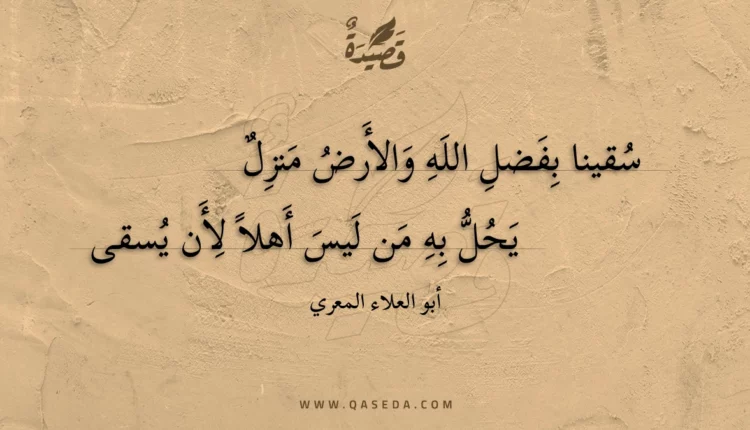 قَصِيْدَةٌ
سُقينا بِفَضلِ اللَهِ وَالأَرضُ مَنزِلٌ
يَحُلُّ بِهِ مَن لَيسَ أَهلاً لِأَن يُسقى
أبو العلاء المعري
WWW.QASEDA.COM